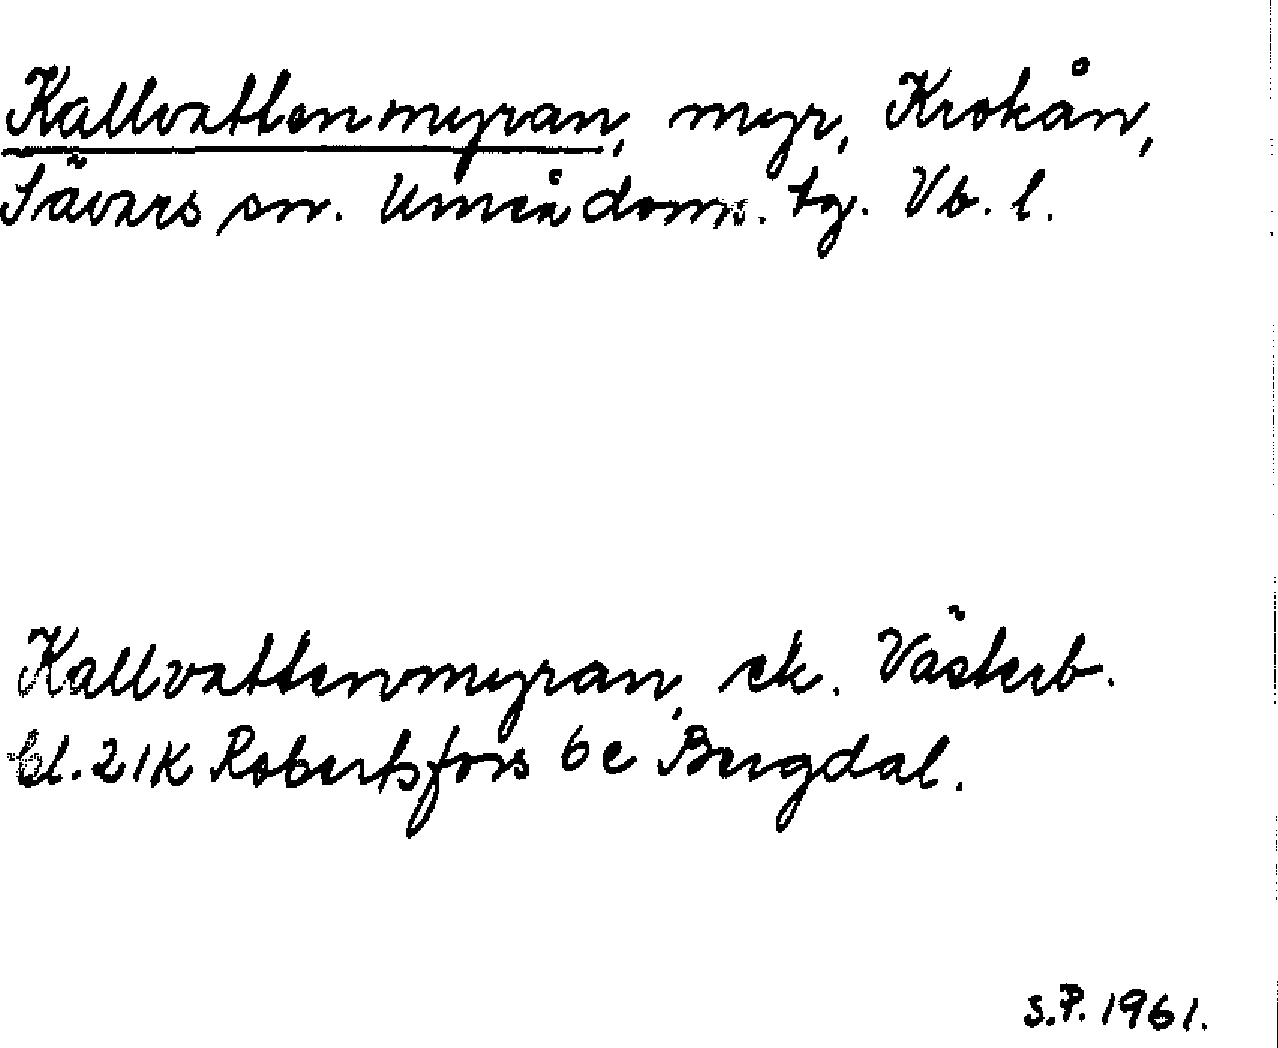 Kallvattenmyran, myr, Krokån,
Sävars sn. Umeå domk. tg. Vb. l.
Kallvattenmyran, ek. Västerb.
bl. 21K Robertsfors 6e Bergdal.
S.P. 1961.